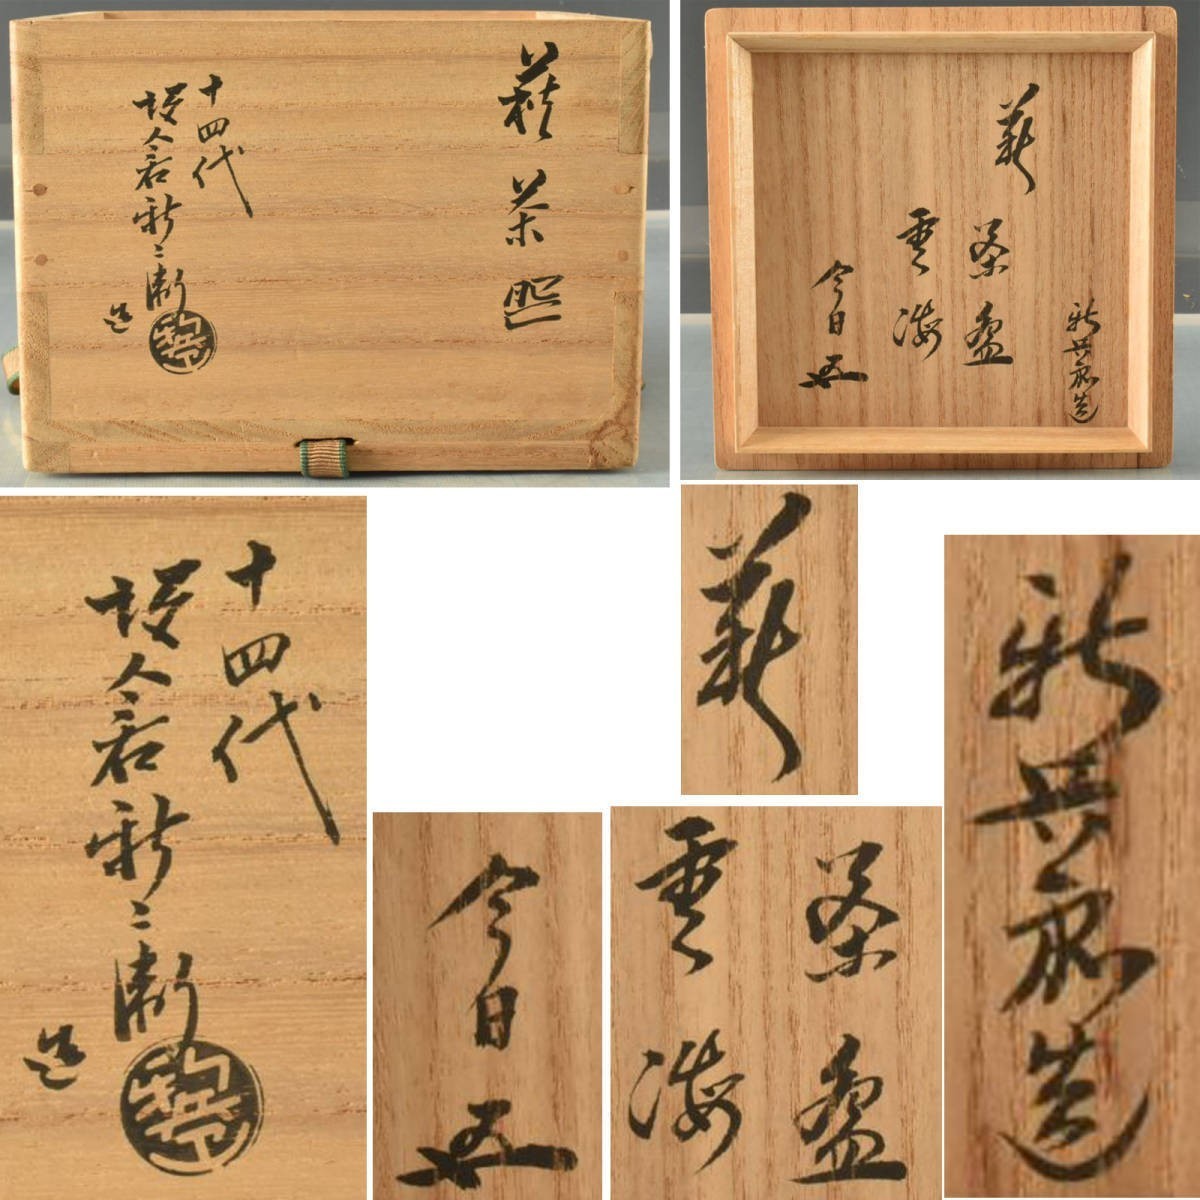 萩茶碗
十四代
坂倉新兵衛
造
萩
茶盌
雲海
今日
新兵衛造
十四代
坂倉新兵衛
造
萩
茶盌
雲海
今日
新兵衛造